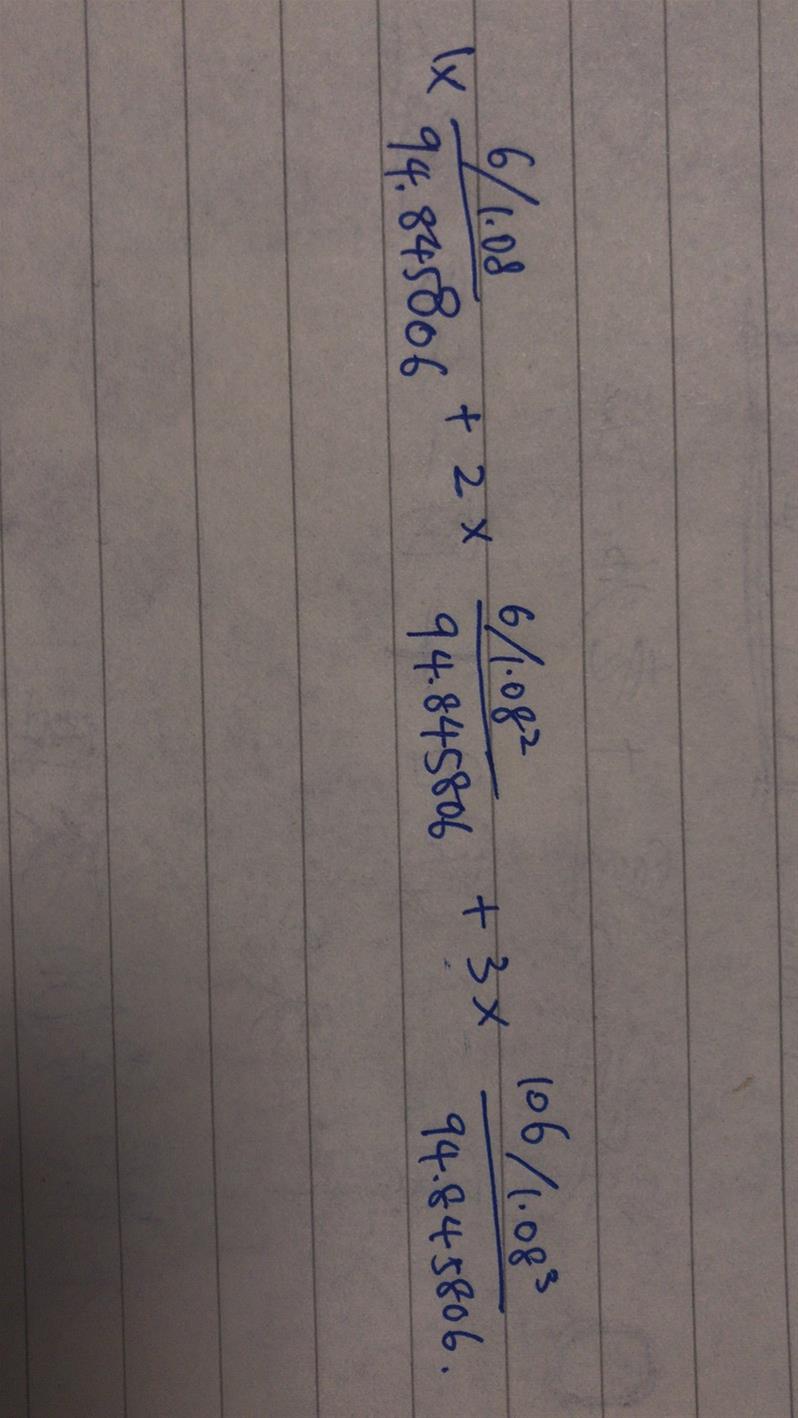 1x (6/1.08)/94.845806 + 2x (6/1.08²)/94.845806 + 3x (106/1.08³)/94.845806.